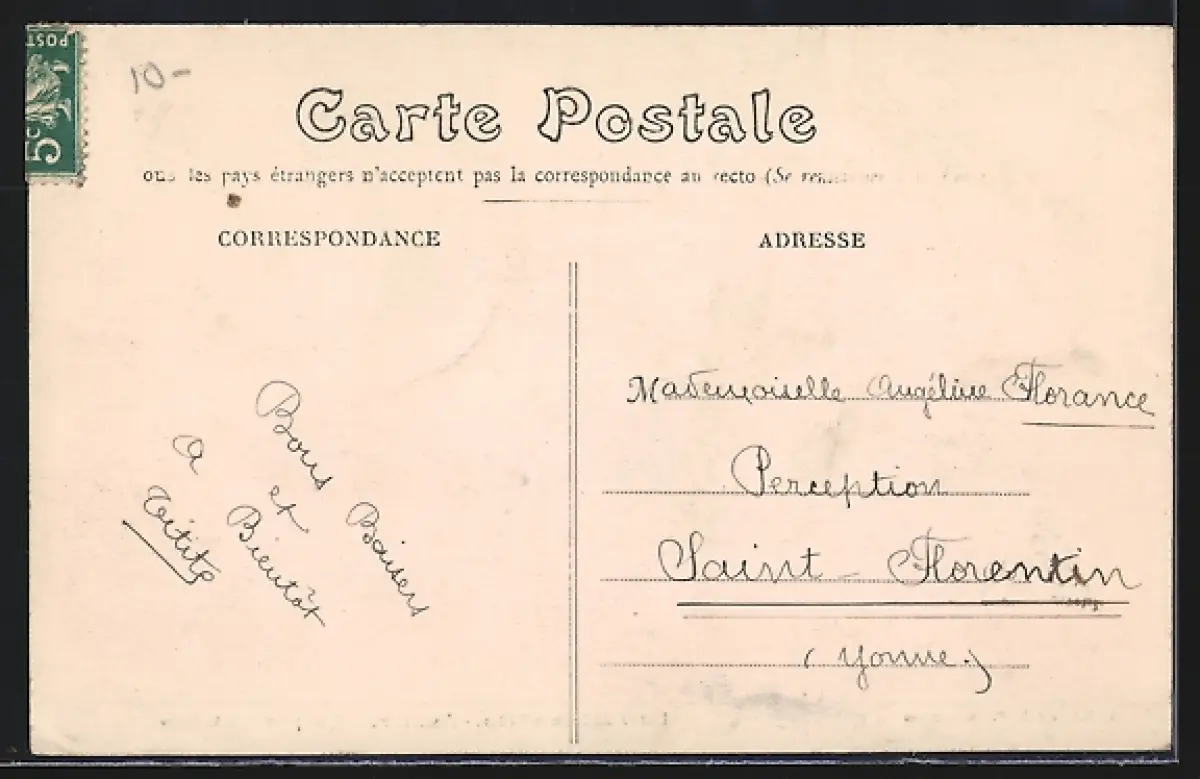 POST
5c
10-
Carte Postale
les pays étrangers n'acceptent pas la correspondance au recto (Se
CORRESPONDANCE
Bons Baisers
et
A Bientôt
Titite
ADRESSE
Mademoiselle Angéline Florance
Perception
Saint-Florentin
(Yonne.)